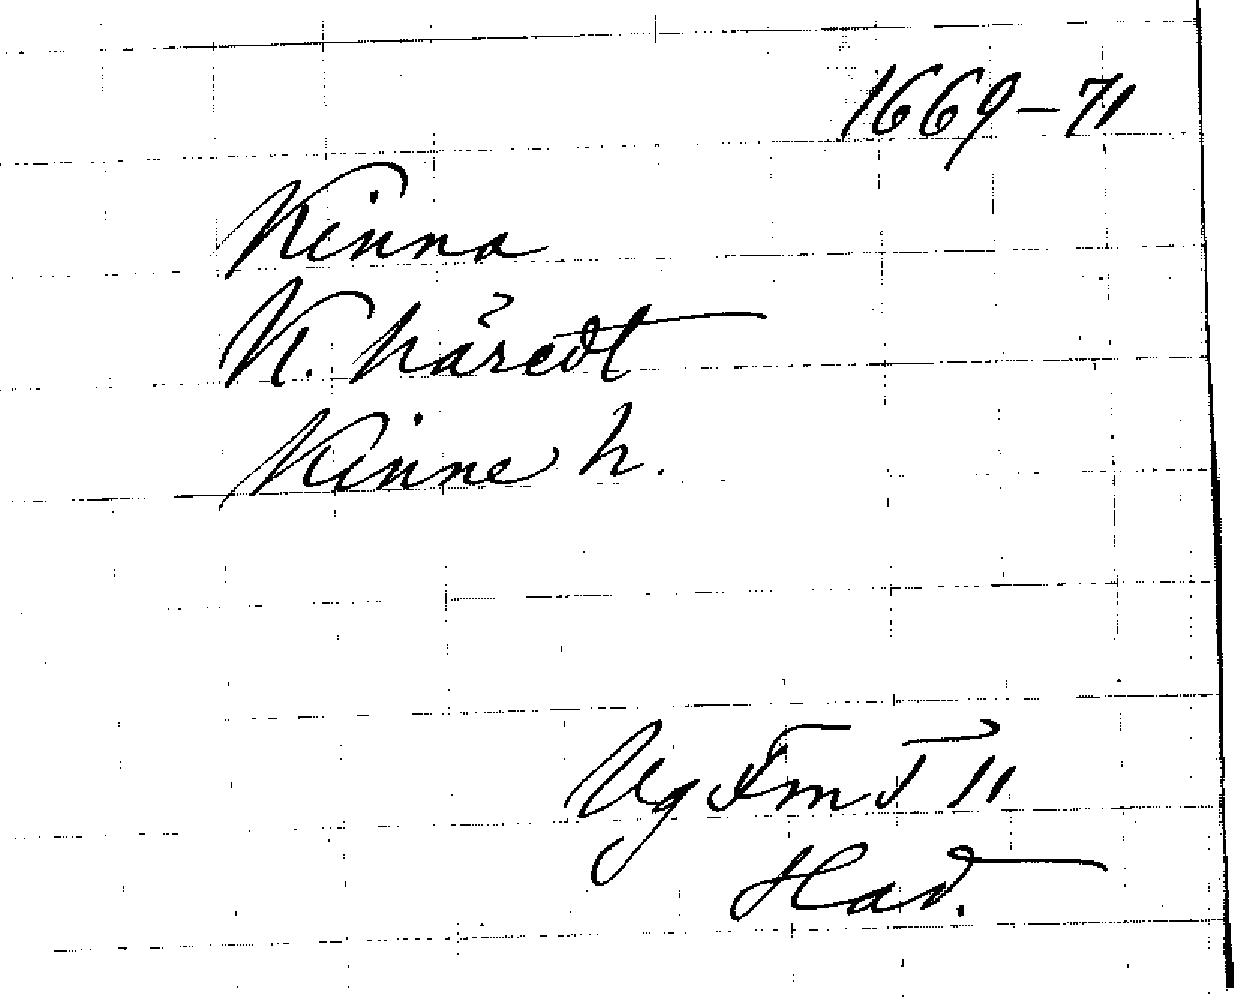 1669-71
Kinna
K. häredt
Kinne h.
Vg Fm T 11
Had.